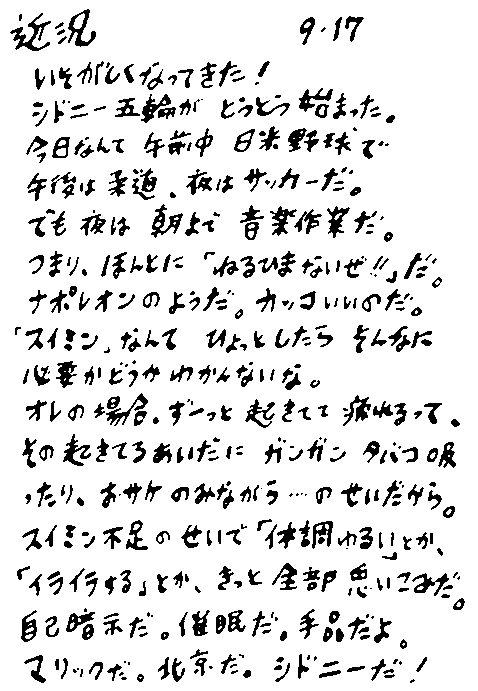 近況 9・17
いそがしくなってきた!
シドニー五輪が とうとう始まった。
今日なんて 午前中 日米野球で
午後は柔道、夜はサッカーだ。
でも夜は 朝まで 音楽作業だ。
つまり、ほんとに「ねるひまないぜ!!」だ。
ナポレオンのようだ。カッコいいのだ。
「スイミン」なんて ひょっとしたら そんなに
必要かどうかわかんないな。
オレの場合、ずーっと起きてて 疲れるって、
その起きてるあいだに ガンガン タバコ吸
ったり、おサケのみながら…の せいだから。
スイミン不足のせいで「体調わるい」とか、
「イライラする」とか、きっと全部 思いこみだ。
自己暗示だ。催眠だ。手品だよ。
マリックだ。北京だ。シドニーだ!